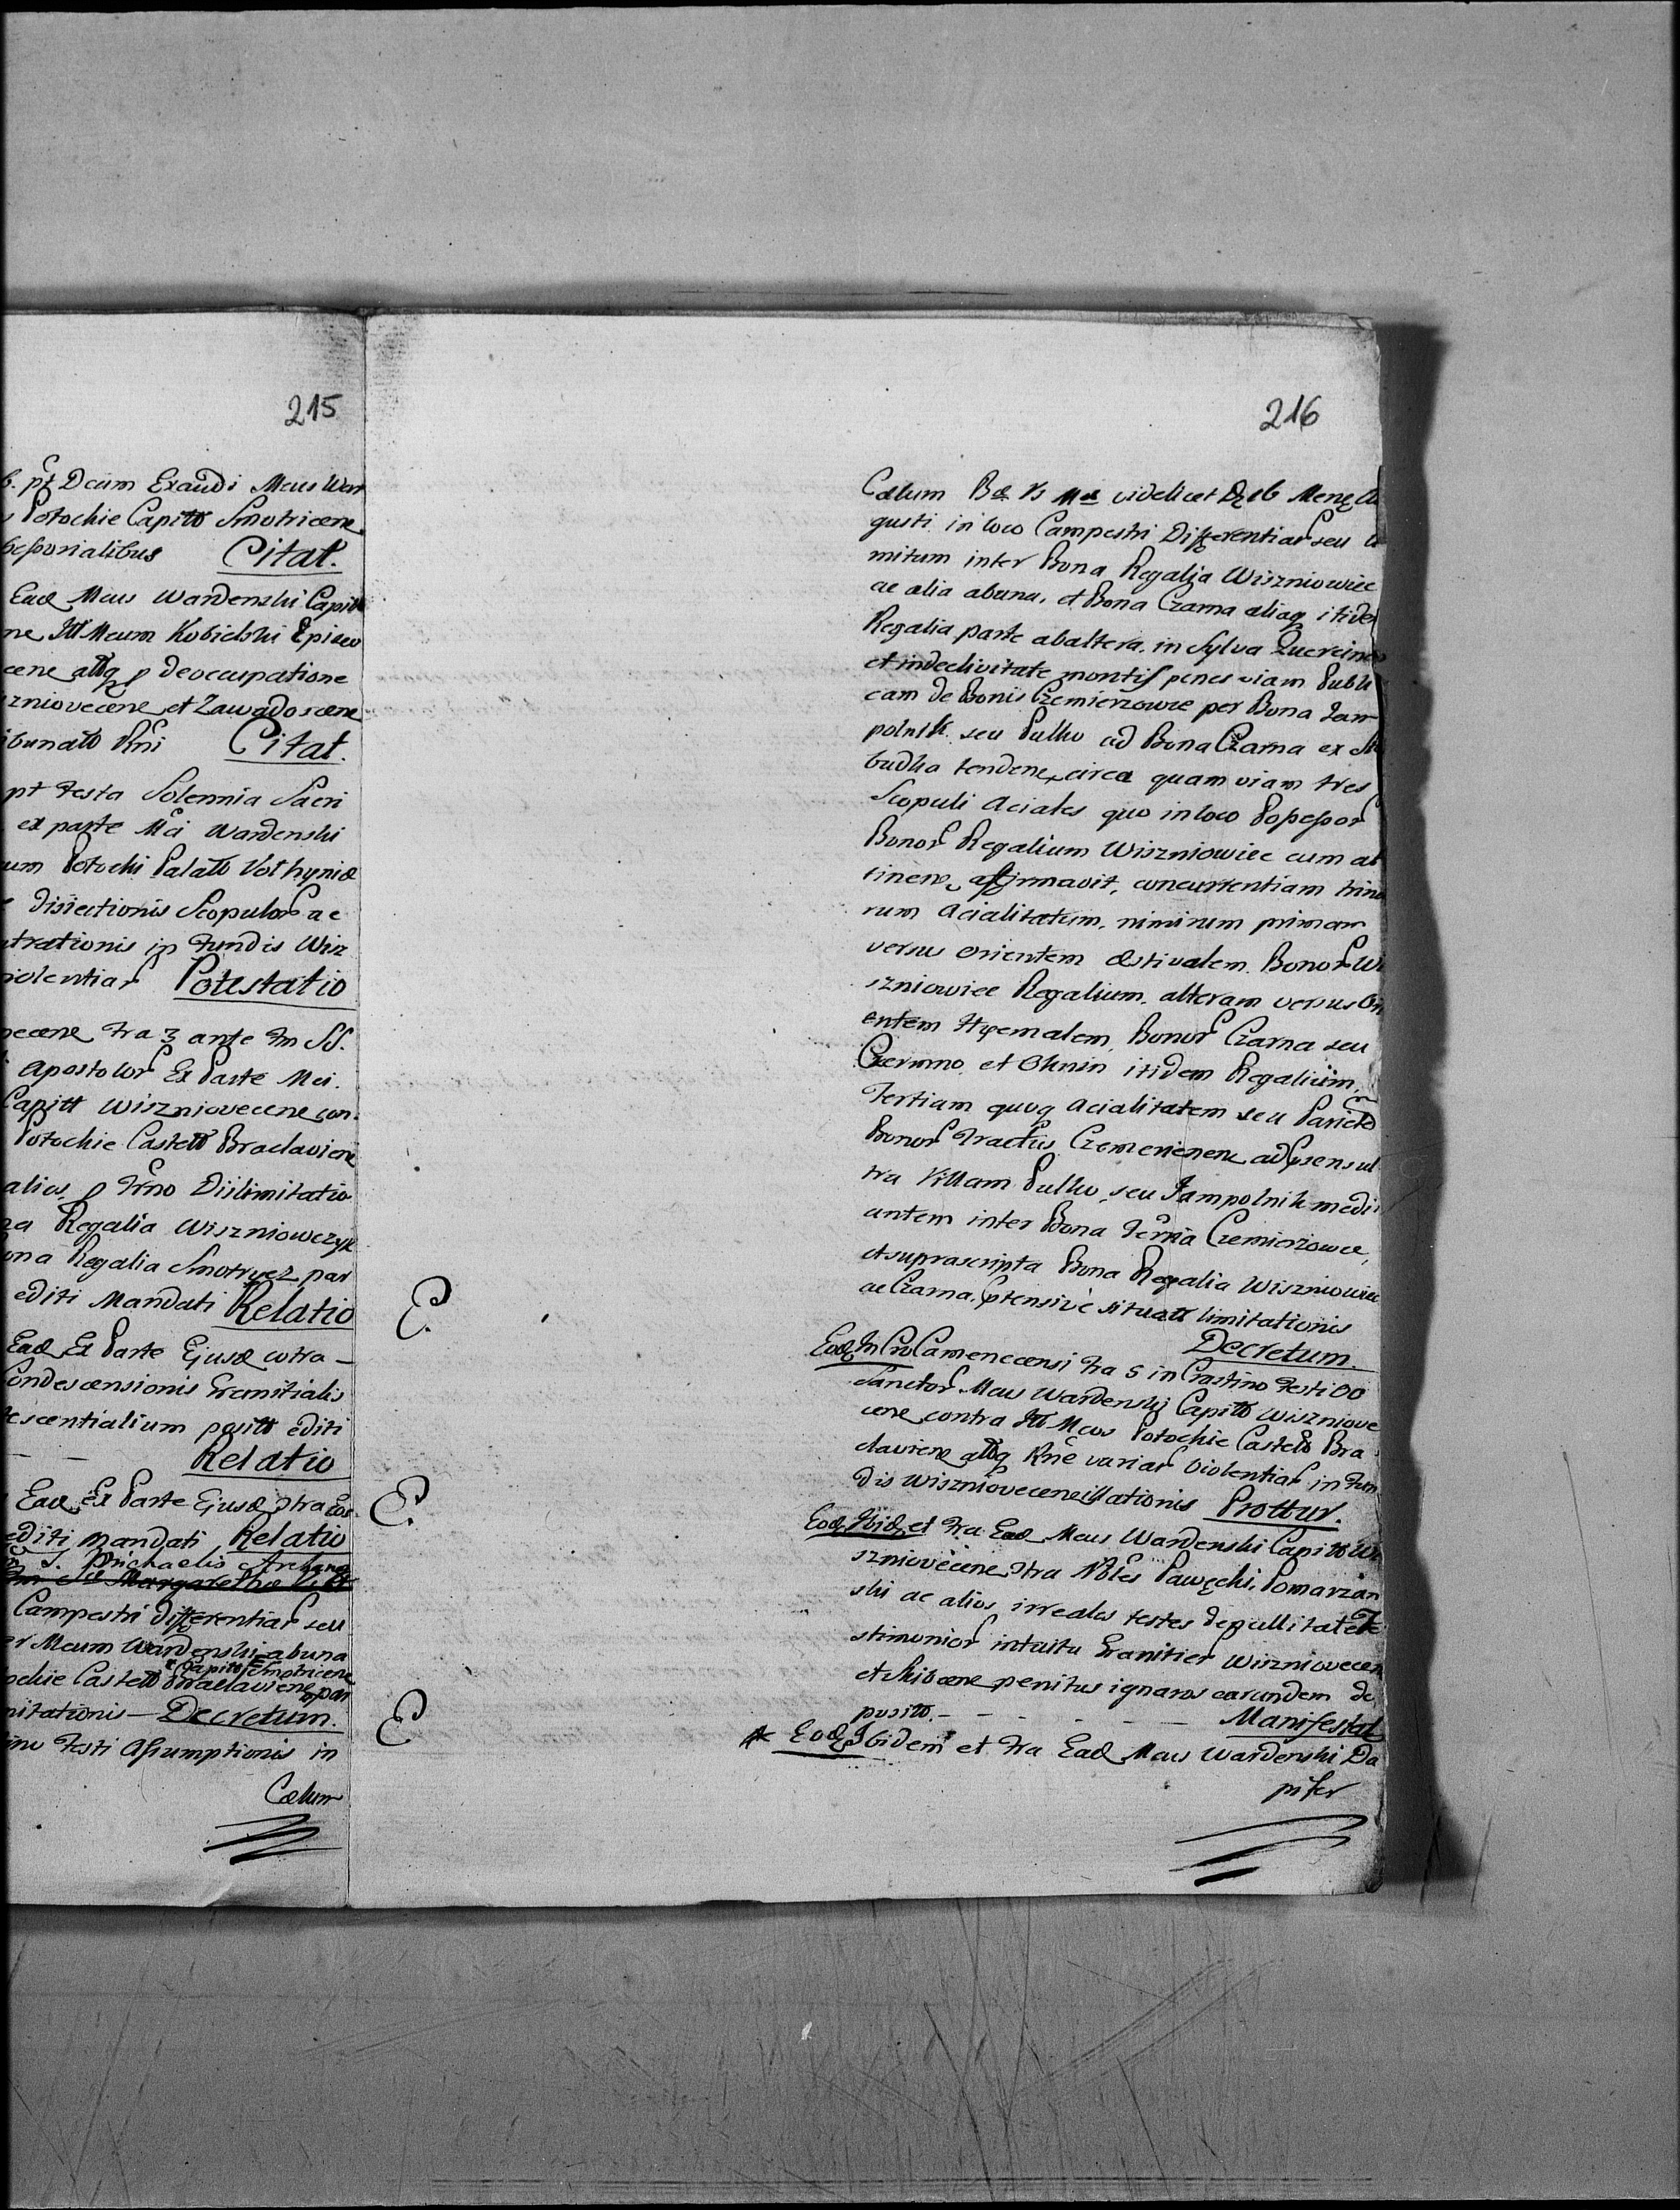 215
b. pt Dcum Exaudi Mcus War
s Potockie Capitt Smotricene
bessorialibus Citat.
Ead Mcus Wardenski Capitt
ne Ill Mcum Kobielski Episco
cene attq p deoccupatione
szniovecene et Zawadoscene
ibunatt Rni Citat.
pt Festa Solennia Sacri
ex parte Mci Wardenski
um Potocki Palatt Volhyniæ
disiectionis Scopulor ac
ntrationis in Fundis Wisz
violentiar Potestatio
necene Fra 3 ante Fm SS.
Apostolor Ex Parte Mci.
Capitt Wiszniovecene con.
Potockie Castell Braclaviene
alios, p Frno Diilimitatio
na Regalia Wiszniowczyk
ona Regalia Smotrycz par
editi Mandati Relatio
Ead Ex Parte Ejusd cotra —
Condescensionis Granitialis
escentialium positt editi
— — Relatio
Ead Ex Parte Ejusd ctra Eos
editi Mandati Relatio
S. Michaelis Archang
Fm Stæ Margarethæ V. et
Campestri differentiar seu
er Mcum Wardenski abuna
Capitt Smotricene
ockie Castell Braclaviene par
mitationis — Decretum.
ino Festi Assumptionis in
Cœlum
216
Cœlum Bæ Vs Mæ videlicet D 16 Mens Au
gusti in loco Campestri Differentiar seu li
mitum inter Bona Regalia Wiszniowiec
ac alia abuna, et Bona Czarna aliaq itide
Regalia parte abaltera, in Sylva Quercina
et indeclivitate montis penes viam Publi
cam de Bonis Czemierzowce per Bona Jam
polnik seu Pulko ad Bona Czarna ex
budka tendene, circa quam viam tres
Scopuli Aciales quo inloco Possessor
Bonor Regalium Wiszniowiec cum at
tinene affirmavit, concurrentiam trina
rum Acialitatum, nimirum primam
versus Orientem æstivalem Bonor Wi
szniowiec Regalium, alteram versus Ori
entem Hyemalem, Bonor Czarna seu
Czermno et Oknin itidem Regalium,
Tertiam quoq Acialitatem seu Parietem
Bonor Tractus Czemerienene adpsens ul
tra Villam Pulko, seu Jampolnik medi
antem inter Bona Terria Czemierzowce,
et suprascripta Bona Regalia Wiszniowiec
ac Czarna, ptensivè situatt limitationis
Decretum.
E. Eod In Cro Camenecensi Fra 5 in Crastino Festi OO
Sanctor Mcus Wardenski Capitt Wiszniove
cene contra Ill Mcos Potockie Castell Bra
claviene attq Rne variar Violentiar in Fun
dis Wiszniovecene illationis Prottur.
E. Eod Ibid et Fra Ead Mcus Wardenski Capitt Wi
szniovecene ctra Nobles Pawęcki, Pomarzan
ski ac alios irreales testes de nullitate Te
stimonior intuitu Granitier Wiszniovecene
et Skibcene penitus ignaros earundem de
positt. — — — — Manifestat
E * Eod Ibidem et Fra Ead Mcus Wardenski Da
pifer